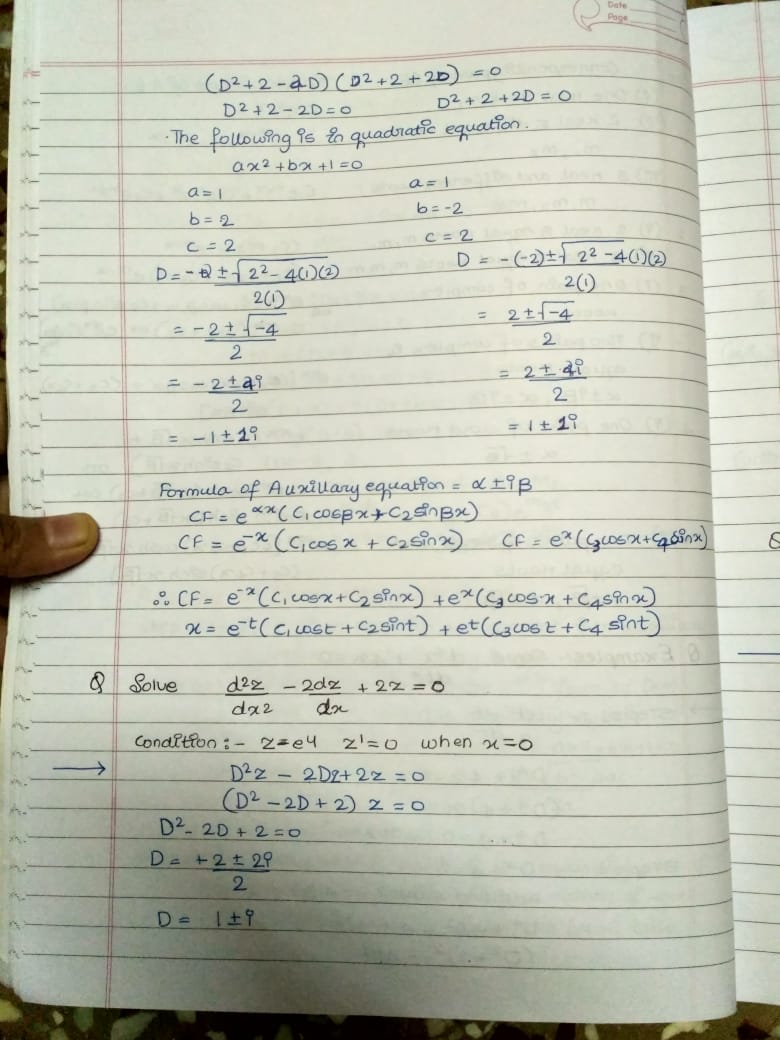 Date
Page
(D²+2-2D) (D²+2+2D) = 0
D²+2-2D=0    D²+2+2D=0
The following is in quadratic equation.
ax²+bx+1=0
a=1    a=1
b=2    b=-2
c=2    c=2
D = -2 ± √(2²-4(1)(2)) / 2(1)    D = -(-2) ± √(2²-4(1)(2)) / 2(1)
= -2 ± √-4 / 2    = 2 ± √-4 / 2
= -2 ± 2i / 2    = 2 ± 2i / 2
= -1 ± 1i    = 1 ± 1i
Formula of Auxillary equation = α ± iβ
CF = e^αx (C₁cosβx + C₂sinβx)
CF = e^-x (C₁cosx + C₂sinx)    CF = e^x (C₃cosx + C₄sinx)
∴ CF = e^-x (C₁cosx + C₂sinx) + e^x (C₃cosx + C₄sinx)
x = e^-t (C₁cost + C₂sint) + e^t (C₃cost + C₄sint)
Q Solve d²z/dx² - 2dz/dx + 2z = 0
Condition :- z=e4 z'=0 when x=0
→ D²z - 2Dz + 2z = 0
(D² - 2D + 2) z = 0
D² - 2D + 2 = 0
D = +2 ± 2i / 2
D = 1 ± i